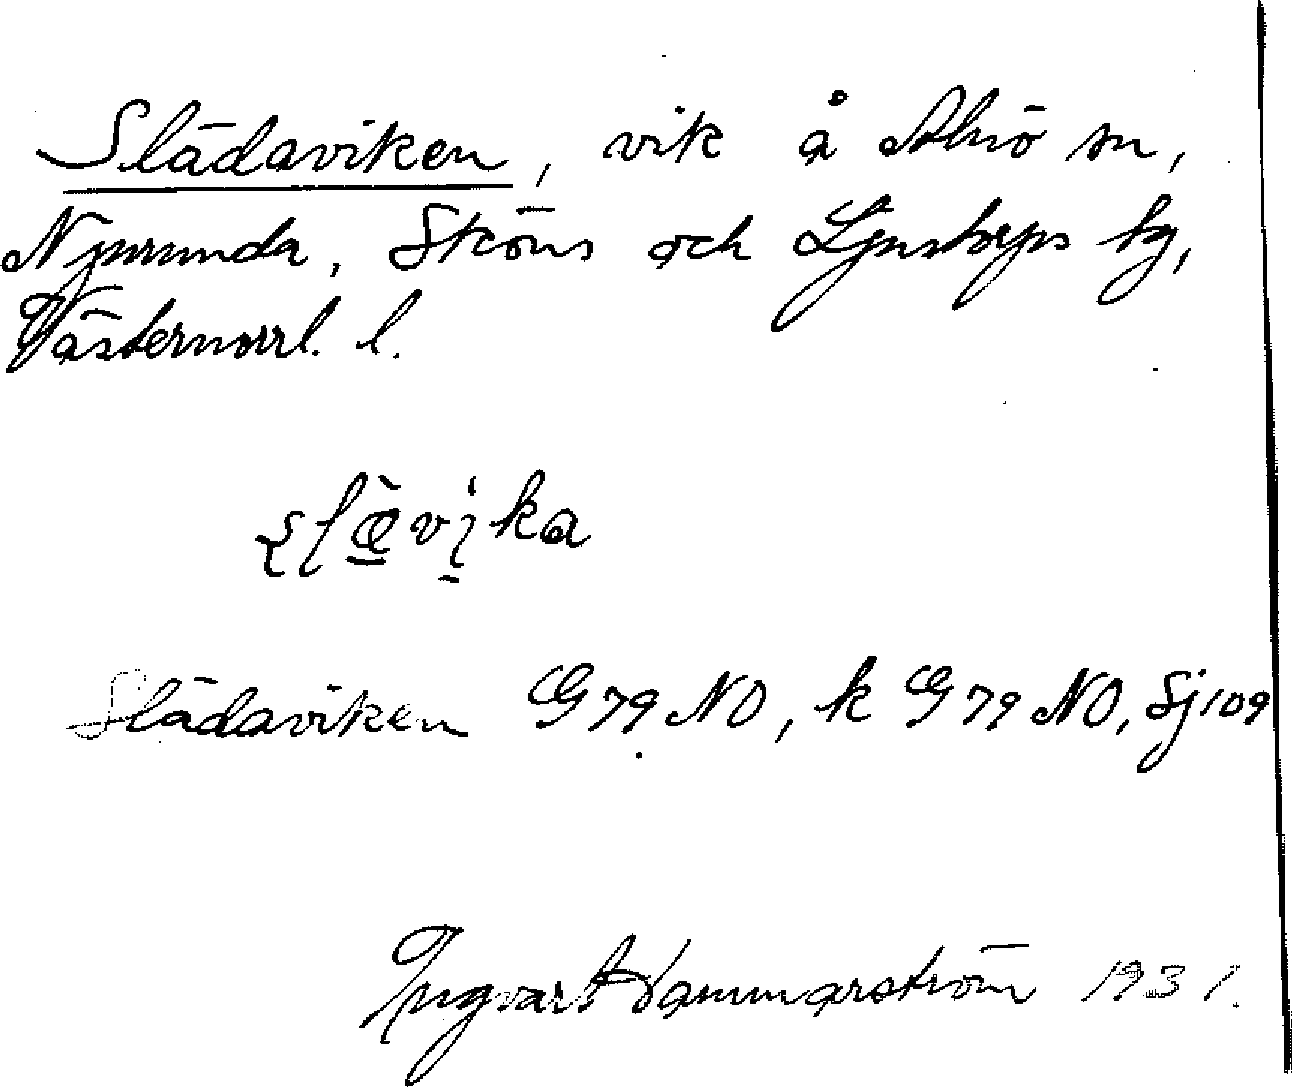 Slädaviken, vik å Alnö sn,
Njurunda, Sköns och Ljustorps tg,
Västernorrl. l.
Slädaviken G 79 NO, k G 79 NO, Sj 109
Ingvart Hammarström 1931.